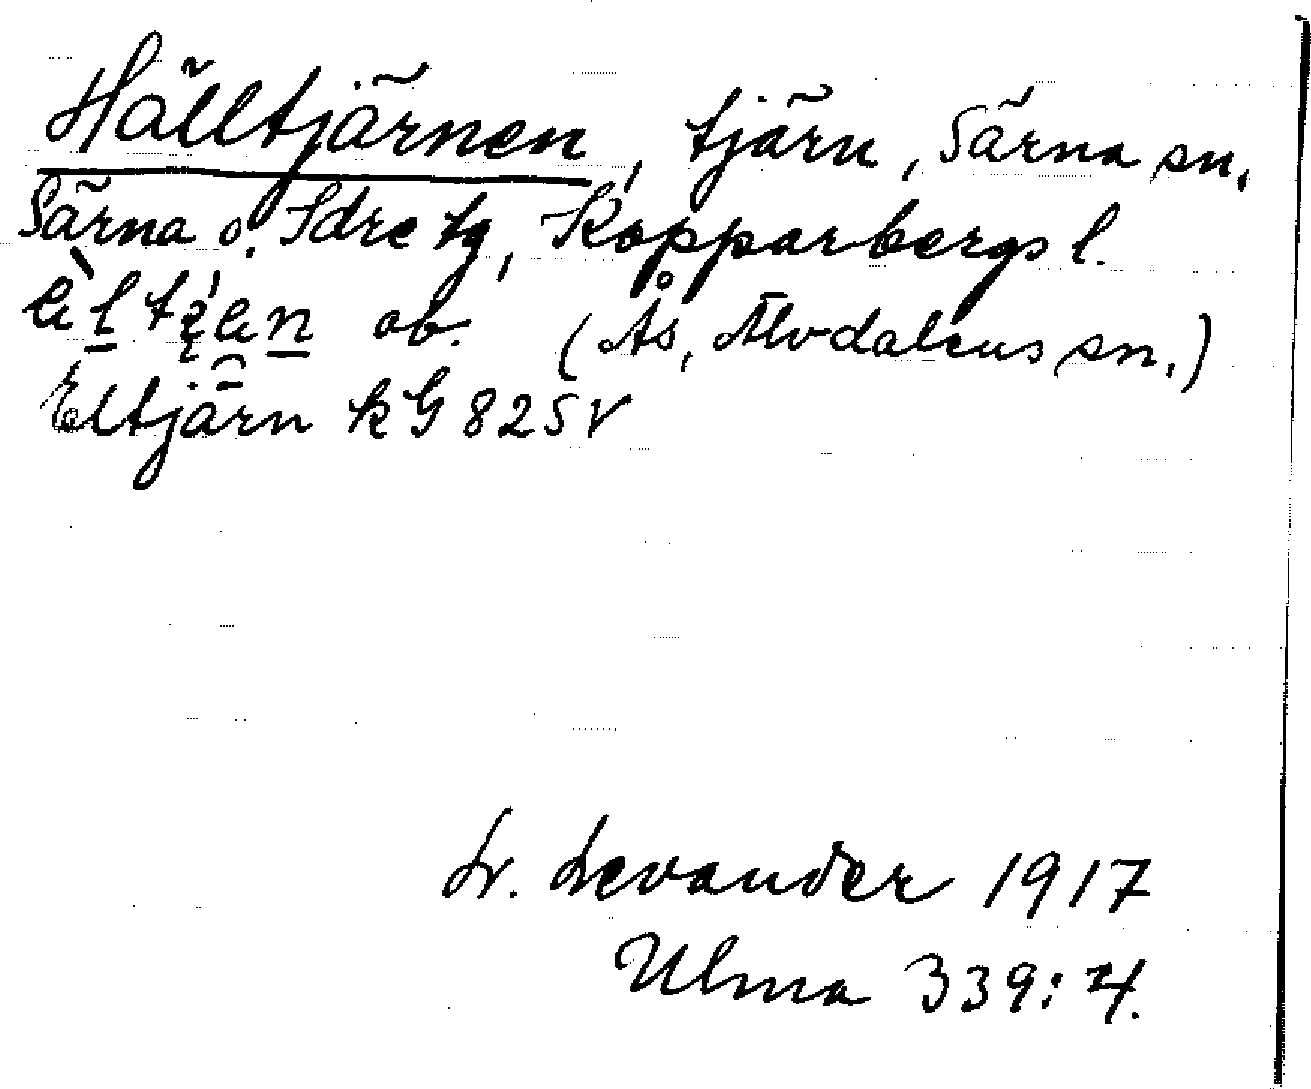 Hälltjärnen, tjärn, Särna sn,
Särna o. Idre tg, Kopparbergs l.
ob. (Ås, Älvdalens sn.)
Eltjärn kG 825 V
Lr. Levander 1917
Ulma 339:4.